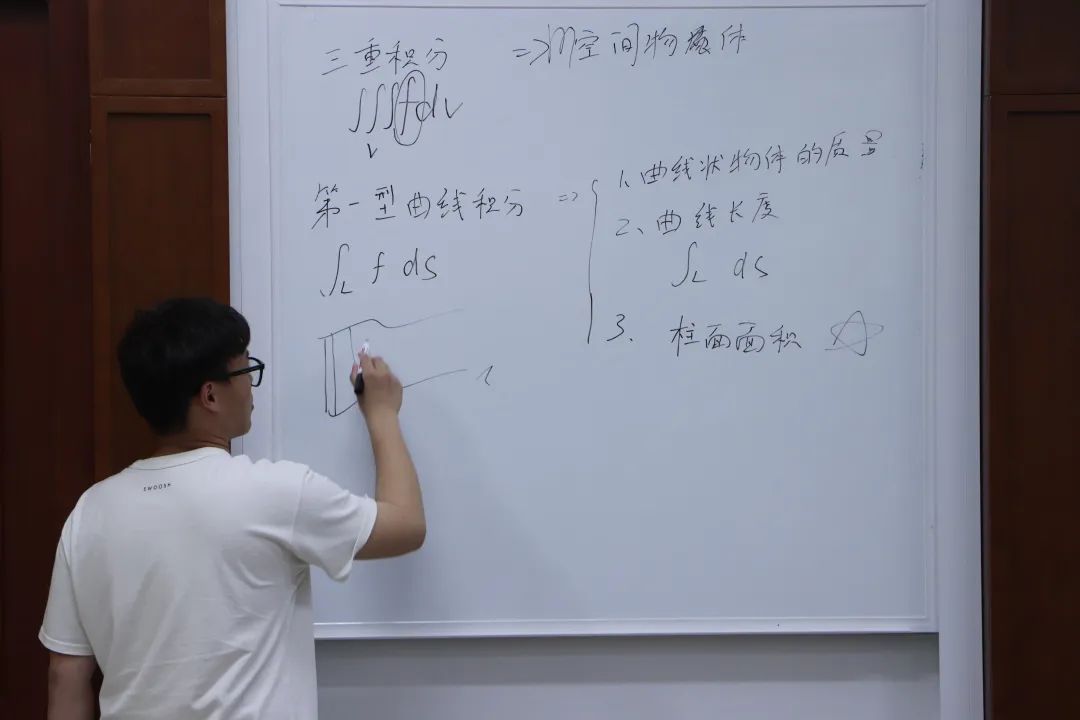 三重积分 => m空间物体
∫∫∫f dv
V
第一型曲线积分 =>
∫L f ds
1、曲线状物体的质量
2、曲线长度
∫L ds
3、柱面面积 ☆
L
SWOOSH